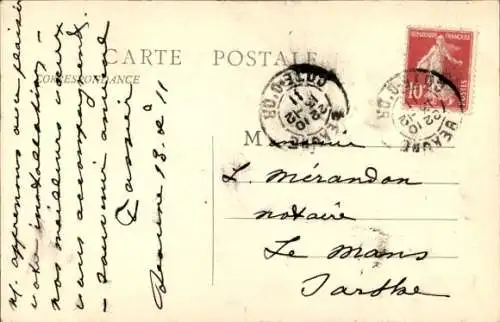 CARTE POSTALE
CORRESPONDANCE
Ns. apprenons avec plaisir
votre installation –
nos meilleurs vœux
vous accompagnent
– souvenir amical
Beaune 18.12.11
BEAUNE
CÔTE-D'OR
RÉPUBLIQUE FRANÇAISE
10
POSTES
BEAUNE
CÔTE-D'OR
Monsieur
L. Mérandon
notaire
Le Mans
Sarthe